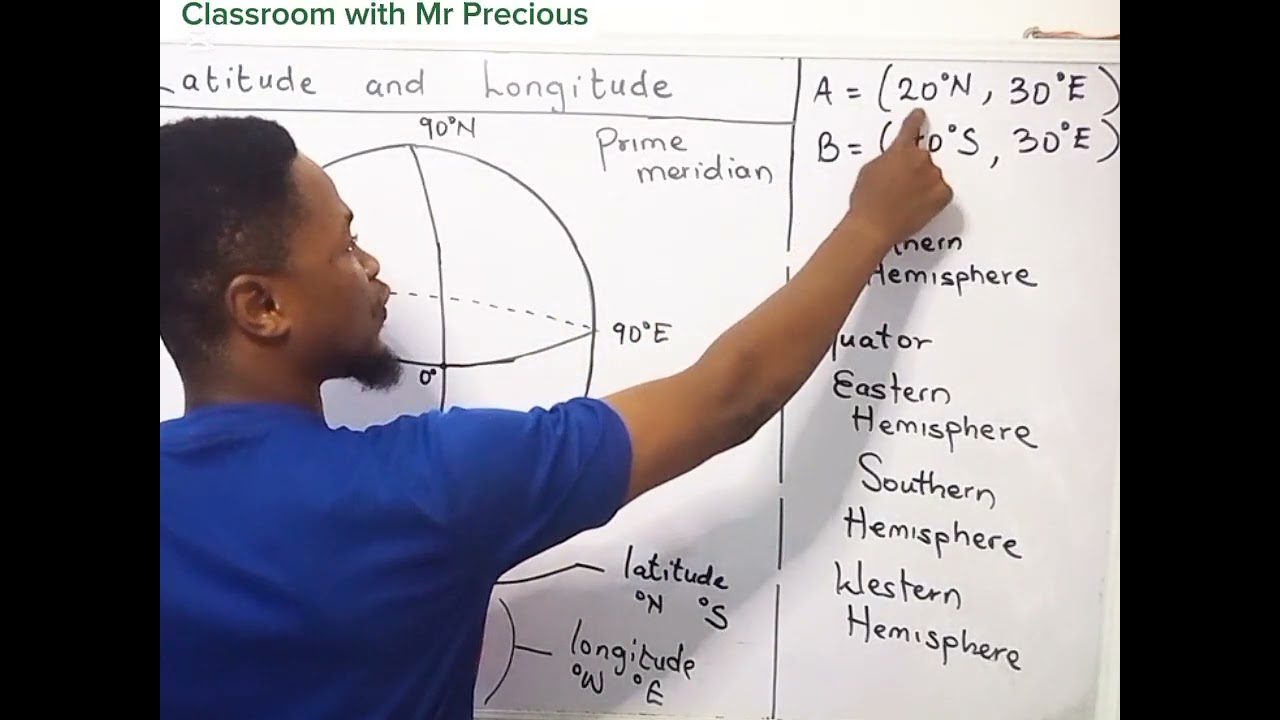 Classroom with Mr Precious
Latitude and Longitude
90°N
Prime
meridian
90°E
0°
latitude
°N °S
longitude
°W °E
A = (20°N, 30°E)
B = ( 0°S, 30°E)
Hemisphere
Eastern
Hemisphere
Southern
Hemisphere
Western
Hemisphere